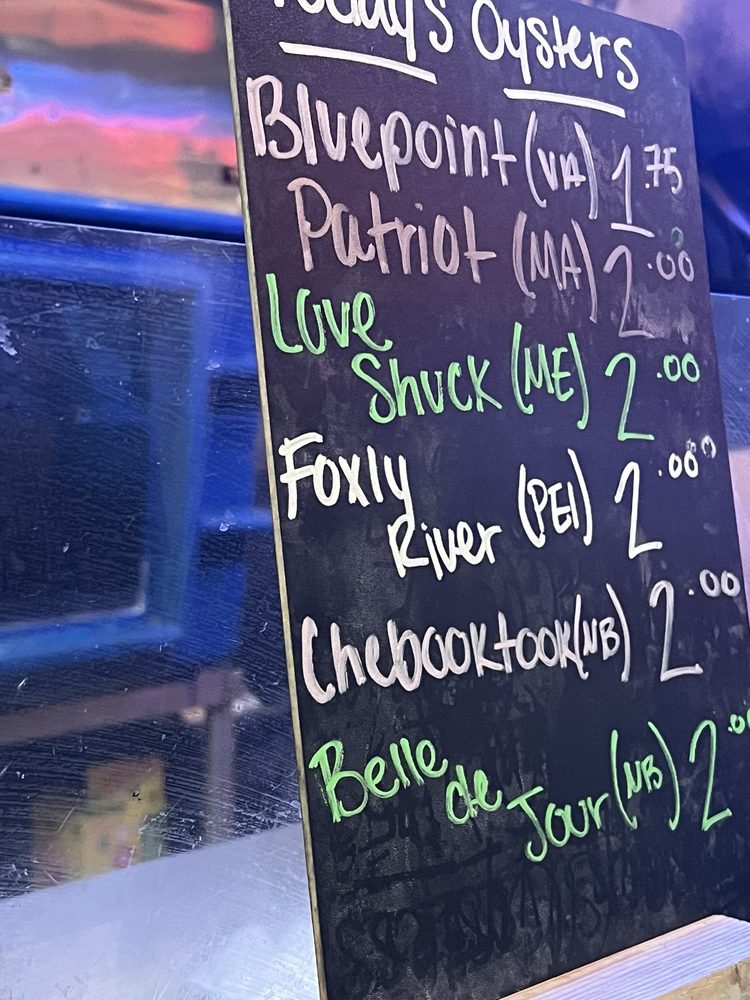 Today's Oysters
Bluepoint (VA) 1.75
Patriot (MA) 2.00
Love
Shuck (ME) 2.00
Foxly
River (PEI) 2.00
Chebooktook (NB) 2.00
Belle
de
Jour (NB) 2.00